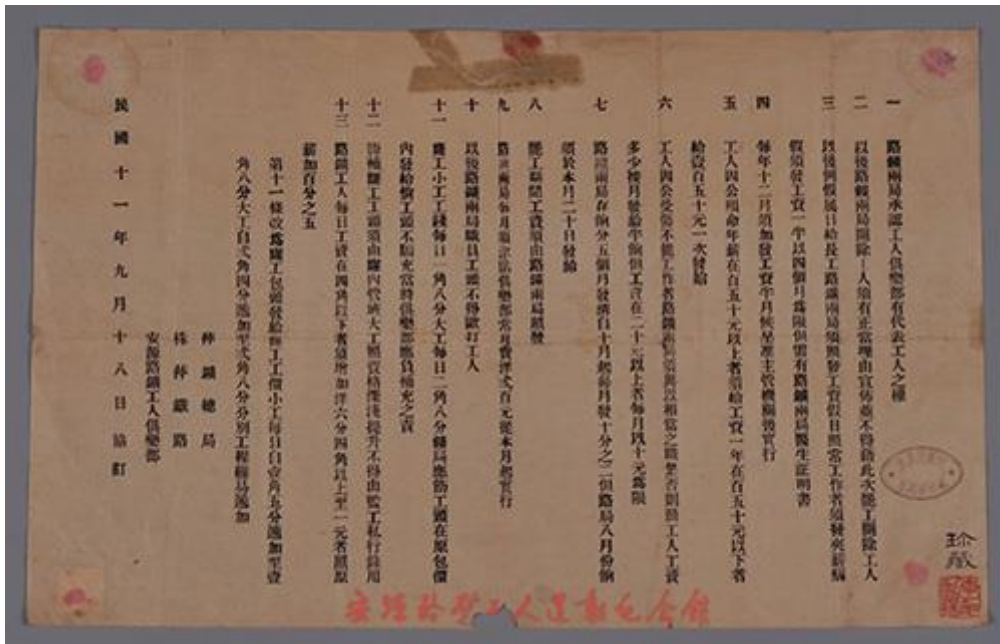 一　路鑛兩局承認工人俱樂部有代表工人之權
二　以後路鑛兩局開除工人須有正當理由宣佈並不得藉此次罷工開除工人
三　以後例假屬日給長工路鑛兩局須照發工資假日照常工作者須發夾薪病
假須發工資一半以四個月爲限但需有路鑛兩局醫生証明書
四　每年十二月須加發工資半月候呈准主管機關後實行
五　工人因公殞命年薪在百五十元以上者須給工資一年在百五十元以下者
給壹百五十元一次發給
六　工人因公受傷不能工作者路鑛兩局須與以相當之職業否則照工人工資
多少按月發給半餉但工資在二十元以上者每月以十元爲限
七　路鑛兩局存餉分五個月發清自十月起每月發十分之二但路局八月份餉
須於本月二十日發給
八　罷工期間工資須由路鑛兩局照發
九　路鑛兩局每月須津貼俱樂部常月費洋弍百元從本月起實行
十　以後路鑛兩局職員工頭不得毆打工人
十一　窿工小工工錢每日一角八分大工每日二角八分
內發給
十二
十三　路鑛工人每日工資在四角以下者須增加洋六分四角以上至一元者照原
薪加百分之五
第十一條改爲窿工包頭發給窿工工價小工每日自壹角五分遞加至壹
角八分大工自弍角四分遞加至弍角八分分別工程難易遞加
萍鑛總局
株萍鐵路
安源路鑛工人俱樂部
民國十一年九月十八日協訂
珍藏
安源路矿工人运动纪念館